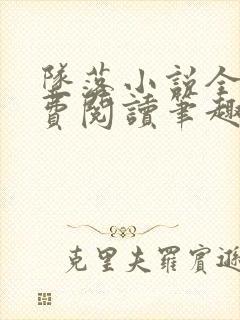 墜落小說全
費閱讀筆趣
克里夫羅賓遜